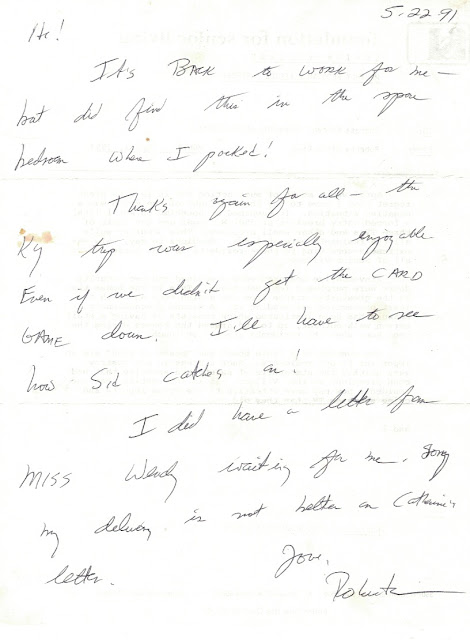 5-22-91
Hi!
It's BACK to WORK for me —
but did find this in the spare
bedroom when I packed!
Thanks again for all — the
KY trip was especially enjoyable
Even if we didn't get the CARD
GAME down. I'll have to see
how Sid catches on!
I did have a letter from
MISS Wendy waiting for me.
my delivery is not better on Catherine's
letter.
Love,
Roberta